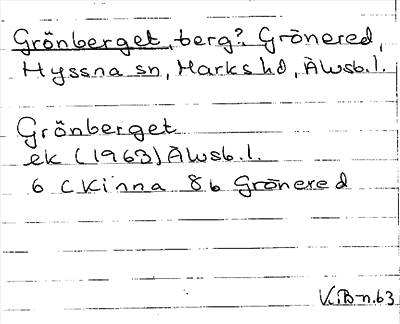 Grönberget, berg? Grönered,
Hyssna sn, Marks hd, Älvsb. l.
Grönberget
ek (1963) Älvsb. l.
6 C Kinna 8b Grönered
K.B-n.63